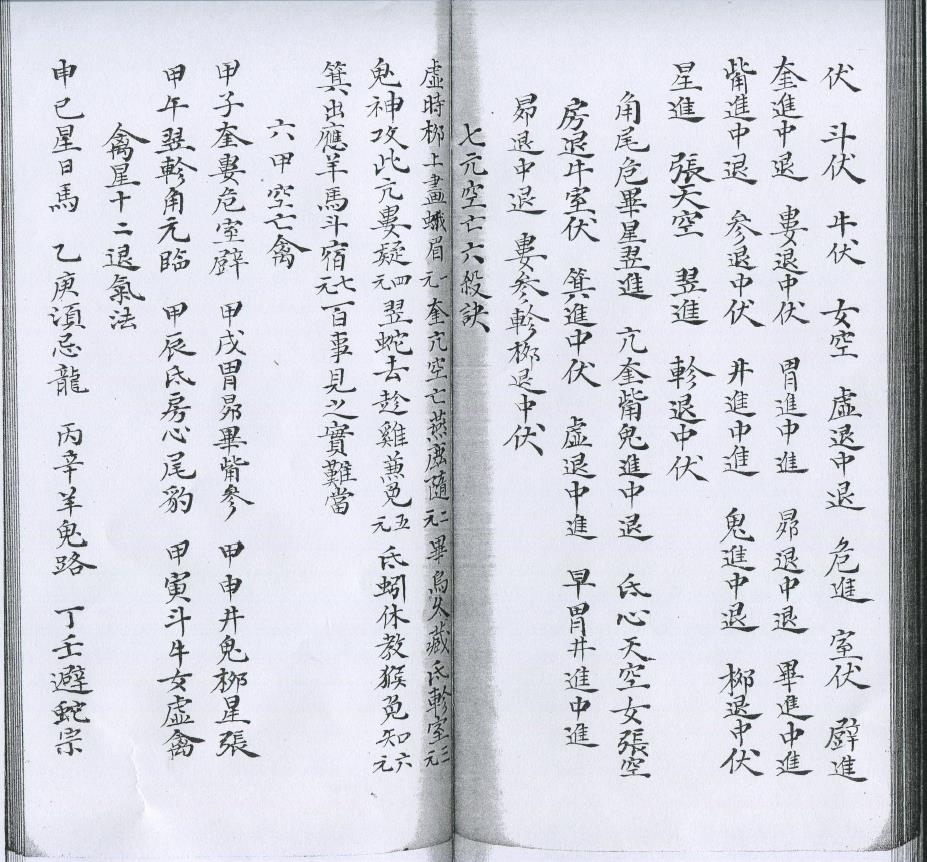 伏 斗伏 牛伏 女空 虛退中退 危進 室伏 壁進
奎進中退 婁退中伏 胃進中進 昴退中退 畢進中進
觜進中退 参退中伏 井進中進 鬼進中退 柳退中伏
星進 張天空 翌進 軫退中伏
角尾危畢星翌進 亢奎觜鬼進中退 氐心天空女張空
房退牛室伏 箕進中伏 虛退中進 早胃井進中進
昴退中退 婁参軫柳退中伏
七元空亡六殺訣
虛時柳上畫蛾眉一元 奎亢空亡燕鹿隨二元 畢烏久藏氐軫室三元
鬼神攻此亢婁疑四元 翌蛇去趁雞兼兔五元 氐蚓休教猴兔知六元
箕出應羊馬斗宿七元百事見之實難當
六甲空亡禽
甲子奎婁危室壁 甲戌胃昴畢觜参 甲申井鬼柳星張
甲午翌軫角元臨 甲辰氐房心尾豹 甲寅斗牛女虛禽
禽星十二退氣法
申巳星日馬 乙庚須忌龍 丙辛羊鬼路 丁壬避蛇宗